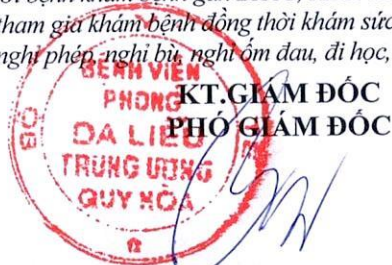 tham gia khám bệnh đồng thời khám sức
nghỉ phép, nghỉ bù, nghỉ ốm đau, đi học,
KT.GIÁM ĐỐC
PHÓ GIÁM ĐỐC
BỆNH VIỆN
PHONG
DA LIỄU
TRUNG ƯƠNG
QUY HÒA